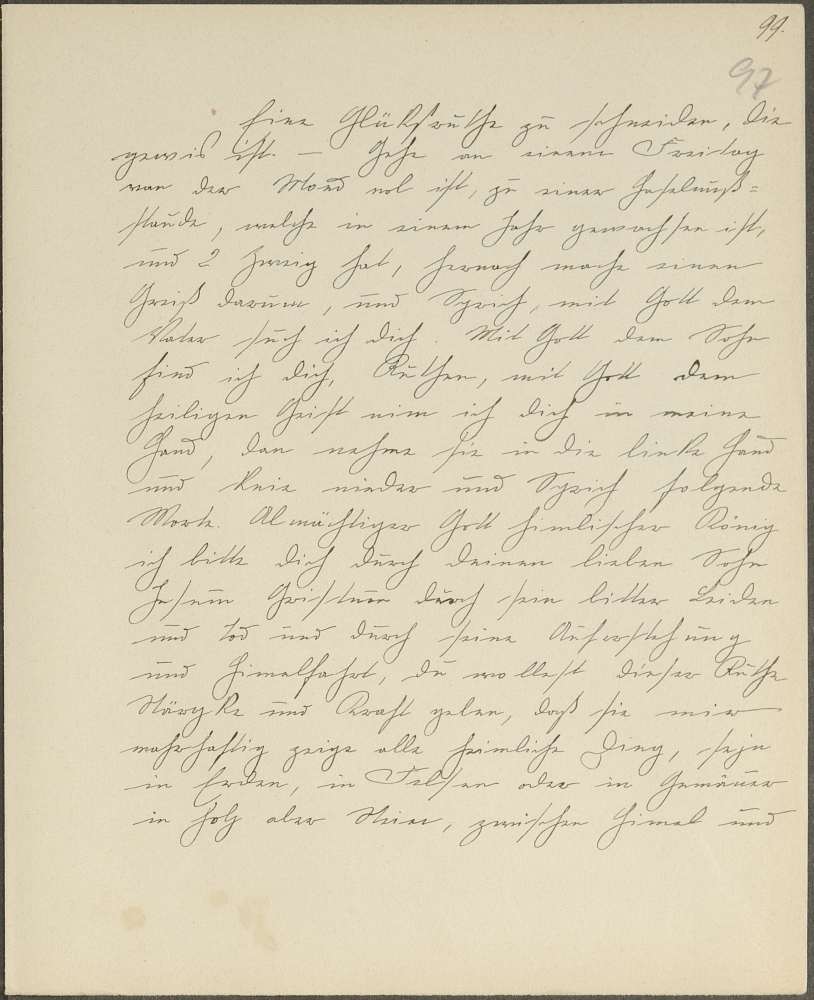 99.
97
Eine Glüksruthe zu schneiden, die
gewis ist. — Gehe an einem Freitag
wan der Mond vol ist, zu einer Haselnuß=
staude, welche in einem Jahr gewachsen ist,
und 2 Zweig hat, hernach mache einen
Greiß darum, und Sprich, mit Gott dem
Vater such ich dich. Mit Gott dem Sohn
find ich dich, Ruthen, mit Gott dem
heiligen Geist nim ich dich in meine
Hand, dan nehme sie in die linke Hand
und knie nieder und Sprich folgende
Worte. Almächtiger Gott himlischer König
ich bitte dich durch deinen lieben Sohn
Jesum Gristum durch sein bitter Leiden
und Tod und durch seine Auferstehung
und Himelfahrt, du wollest dieser Ruthe
Stärgke und Kraft geben, daß sie mir
wahrhaftig zeige alle heimliche Ding, seje
in Erden, in Felsen oder in Gemäuer
in Holz ober Stein, zwischen Himel und